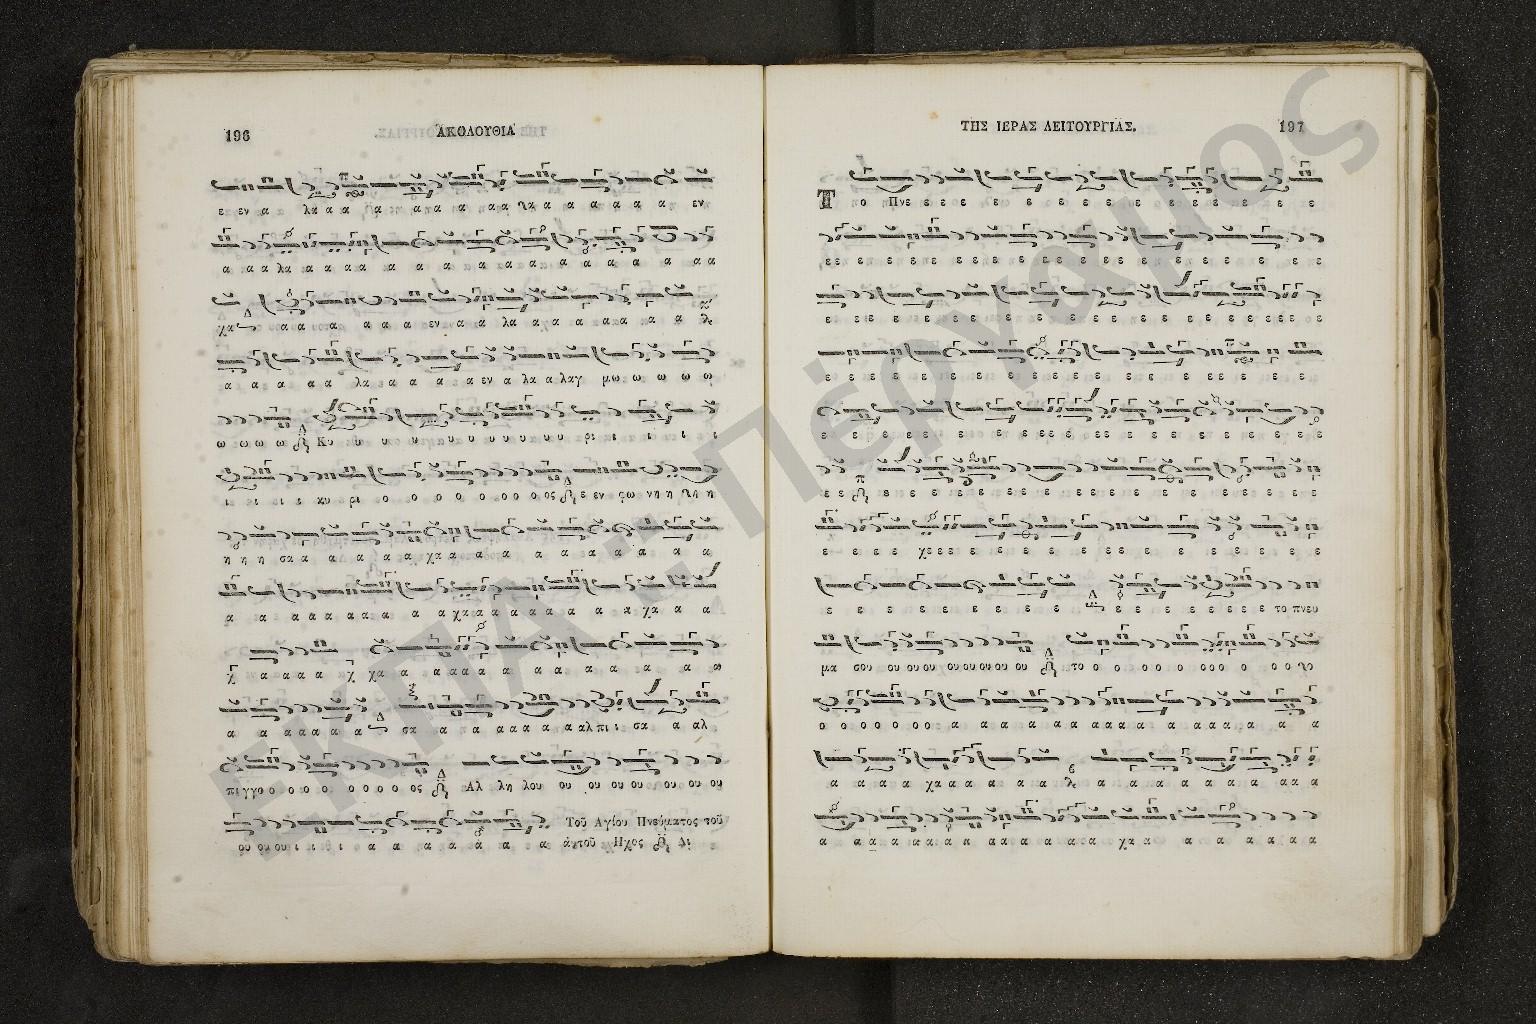 196
ΑΚΟΛΟΥΘΙΑ
ε εν α λα α α α α α α α α α α α α α α εν
α α α λα α α α α α α α α α α α α α α α
χα α α α α α α α εν α α λα α α α α α α α
α α α α α λα α α α α α εν α λα α λαγ μω ω ω ω ω
ω ω ω ω Κυ υ υ υ υ υ υ υ υ υ υ ρι ι ι ι ι
ι ι ι ι κυ ρι ο ο ο ο ο ο ο ο ος ε εν ζω νη η η η
η η η σα α α α α α α χα α α α α α α α α α
α α α α α α α α α χα α α α α α α α α χα α α
χ α α α α χ χα α α α α α α α α α α α
α α α α α α σα α α α α α α α αλ πι ι σα α αλ
πιγ γο ο ο ο ο ο ο ο ο ος Αλ λη λου ου ου ου ου ου ου ου
ου ου ου ι ι ι ι α α α α α α α
Τοῦ Αγίου Πνεύματος τοῦ
ἀυτοῦ Ηχος Δι
ΤΗΣ ΙΕΡΑΣ ΛΕΙΤΟΥΡΓΙΑΣ.
197
Το Πνε ε ε ε ε ε ε ε ε ε ε ε ε ε ε ε
ε ε ε ε ε ε ε ε ε ε ε ε ε ε ε ε ε ε
ε ε ε ε ε ε ε ε ε ε ε ε ε ε ε ε ε ε ε ε
ε ε ε ε ε ε ε ε ε ε ε ε ε ε ε ε ε
ε ε ε ε ε ε ε ε ε ε ε ε ε ε ε ε ε ε ε
ε ε ε ε ε ε ε ε ε ε ε ε ε ε ε ε ε ε ε
ε ε ε ε χε ε ε ε ε ε ε ε ε ε ε ε ε ε ε ε
ε ε ε ε ε ε ε ε ε ε ε ε ε ε ε ε ε το πνευ
μα σου ου ου ου ου ου ου ου ου το ο ο ο ο ο ο ο ο ο ο ο
ο ο ο ο ο ο ο α α α α α α α α α α α α α α α α
α α α α χα α α α α α α α α α α α α α α α α
α α α α α α α α α α α α α χα α α α α α α α
ΕΚΠΑ - Πέργαμος